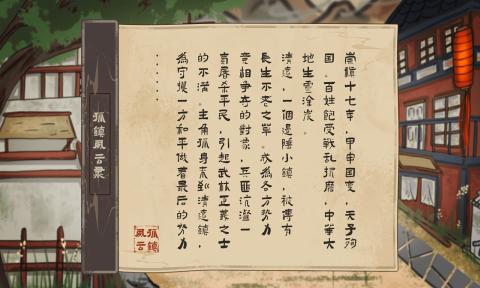 崇禎十七年，甲申國變，天子殉
國。百姓飽受戰乱折磨，中華大
地生靈塗炭。
清遠，一個邊陲小鎮，被傳有
長生不老之草。成為各方势力
竞相爭夺的對象，兵匪沆瀣一
氣屠杀平民，引起武林正義之士
的不滿。主角孤身來到清遠鎮，
為守護一方和平做着最后的努力
······
孤鎮風云录
孤鎮
風云